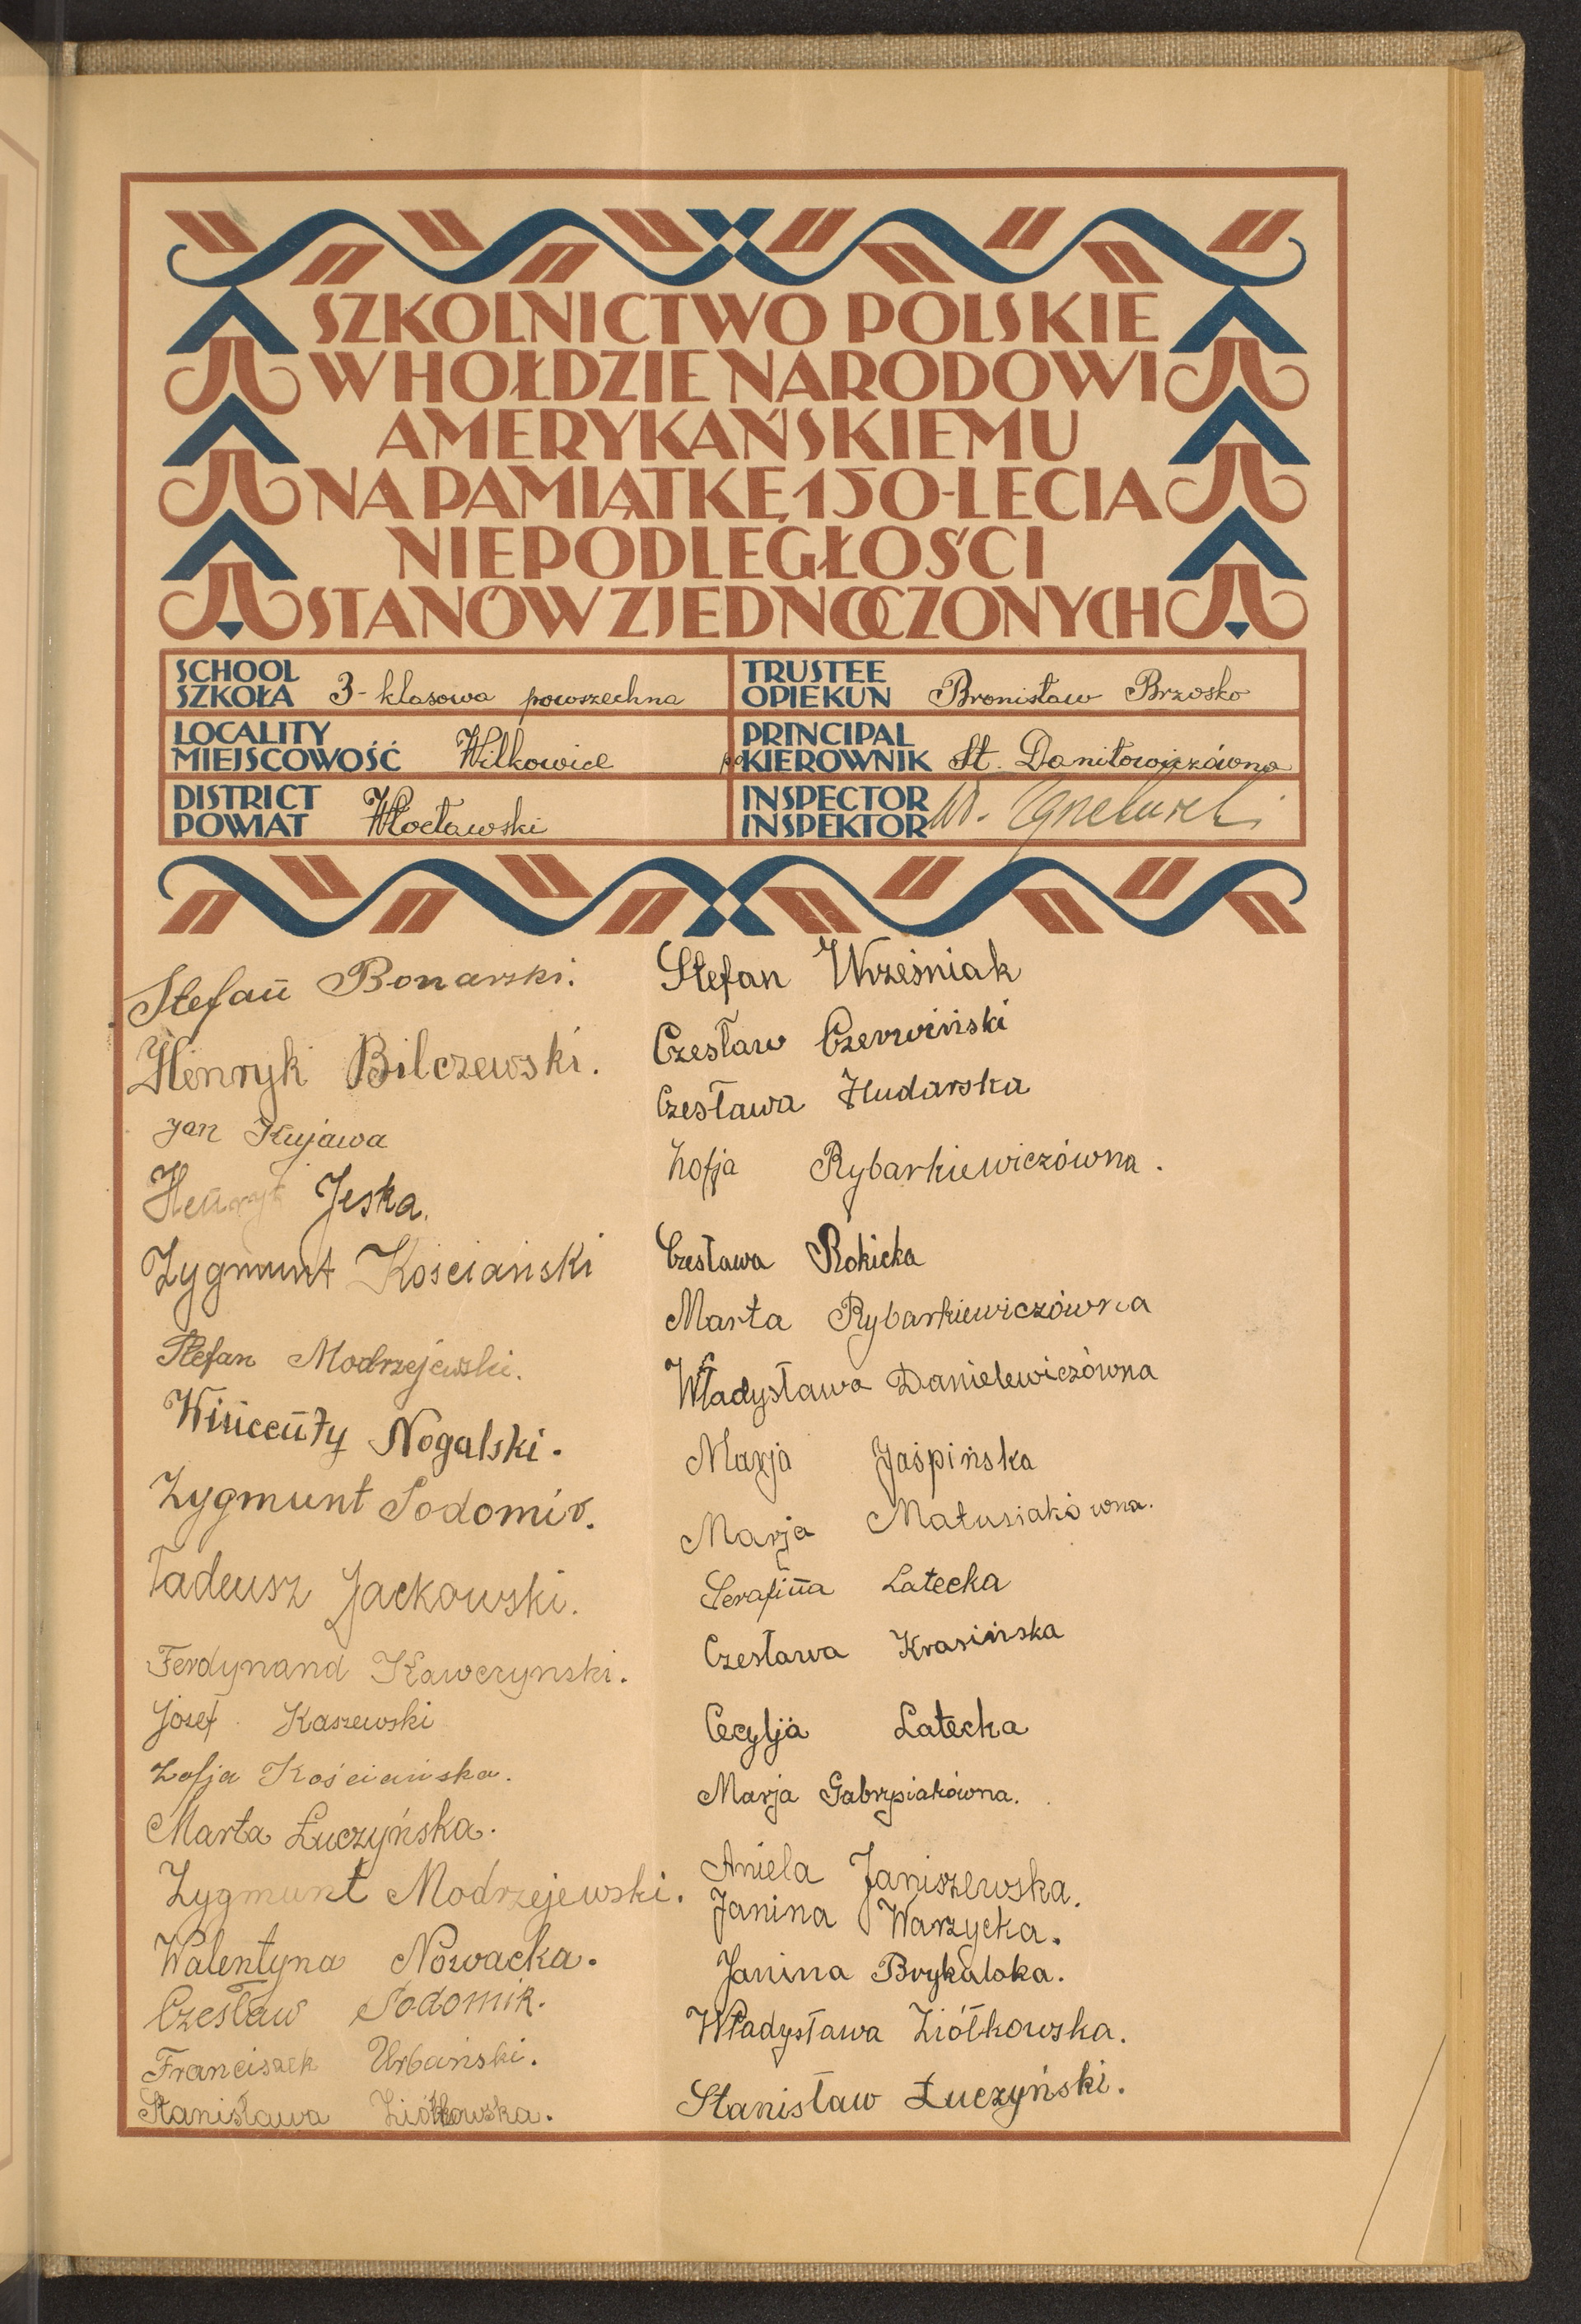 SZKOLNICTWO POLSKIE
W HOŁDZIE NARODOWI
AMERYKAŃSKIEMU
NA PAMIĄTKĘ 150-LECIA
NIEPODLEGŁOŚCI
STANÓW ZJEDNOCZONYCH
SCHOOL
SZKOŁA 3-klasowa powszechna
TRUSTEE
OPIEKUN Bronisław Brzosko
LOCALITY
MIEJSCOWOŚĆ Wilkowice
PRINCIPAL
KIEROWNIK St. Daniłowiczówna
DISTRICT
POWIAT Włocławski
INSPECTOR
INSPEKTOR W.
Stefan Bonarski.
Henryk Bilczewski.
Jan Kujawa
Henryk Jeska.
Zygmunt Kościański
Stefan Modrzejewski.
Wincenty Nogalski.
Zygmunt Sodomir.
Tadeusz Jackowski.
Ferdynand Kawczynski.
Józef Kaszewski
Zofja Kościańska.
Marta Łuczyńska.
Zygmunt Modrzejewski.
Walentyna Nowacka.
Czesław Sodomir.
Franciszek Urbański.
Stanisława Ziółkowska.
Stefan Wrześniak
Czesław Czerwiński
Czesława Hudarska
Zofja Rybarkiewiczówna.
Czesława Rokicka
Marta Rybarkiewiczówna
Władysława Danielewiczówna
Marja Jaśpińska
Marja Matusiakówna.
Serafina Latecka
Czesława Krasińska
Cecylja Latecka
Marja Gabrysiakówna.
Aniela Janiszewska.
Janina Warzycka.
Janina Brykalska.
Władysława Ziółkowska.
Stanisław Łuczyński.